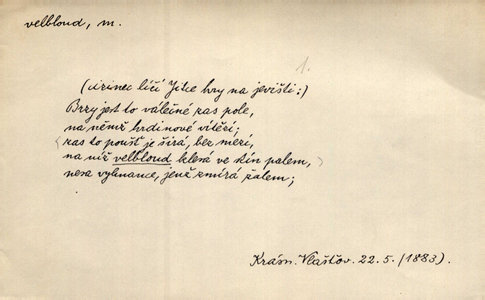 velbloud, m.
1.
(Mrinec líčí Jitce hry na jevišti:)
Brzy jest to válečné zas pole,
na němž hrdinové vítězí;
zas to poušť je širá, bez mezí,
na níž velbloud klesá ve stín palem,
nesa vyhnance, jenž zmírá žalem;
Krásn. Vlaštov. 22.5. (1883).